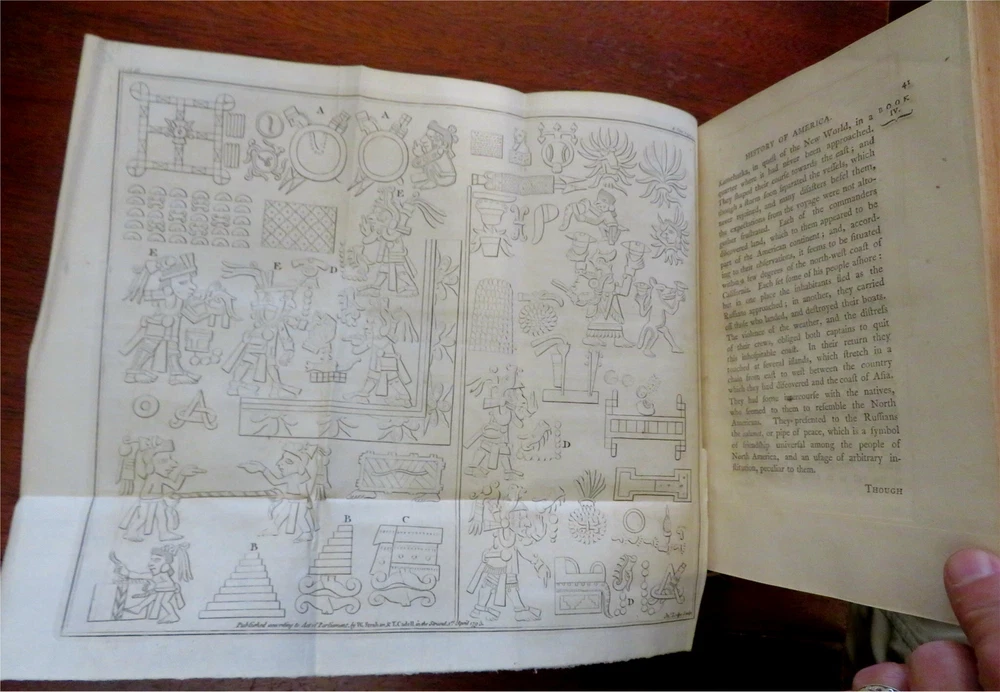 A
A
E
E
E
D
D
B
B
C
D
Published according to Act of Parliament, by W. Strahan & T. Cadell, in the Strand, 1st April
HISTORY OF AMERICA.
41
BOOK
IV.
Kamchatka, in quest of the New World, in a
quarter where it had never been approached.
They shaped their course towards the east; and
though a storm soon separated the vessels, which
never rejoined, and many disasters befel them,
the expectations from the voyage were not alto-
gether frustrated. Each of the commanders
discovered land, which to them appeared to be
part of the American continent; and, accord-
ing to their observations, it seems to be situated
within a few degrees of the north-west coast of
California. Each set some of his people ashore:
but in one place the inhabitants fled as the
Russians approached; in another, they carried
off those who landed, and destroyed their boats.
The violence of the weather, and the distress
of their crews, obliged both captains to quit
this inhospitable coast. In their return they
touched at several islands, which stretch in a
chain from east to west between the country
which they had discovered and the coast of Asia.
They had some intercourse with the natives,
who seemed to them to resemble the North
Americans. They presented to the Russians
the calumet, or pipe of peace, which is a symbol
of friendship universal among the people of
North America, and an usage of arbitrary in-
stitution, peculiar to them.
THOUGH